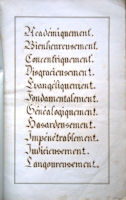 Académiquement.
Bienheureusement.
Concentriquement.
Disgracieusement.
Evangéliquement.
Fondamentalement.
Généalogiquement.
Hasardeusement.
Impénétrablement.
Judicieusement.
Langoureusement.